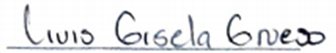 Livis Gisela Grueso